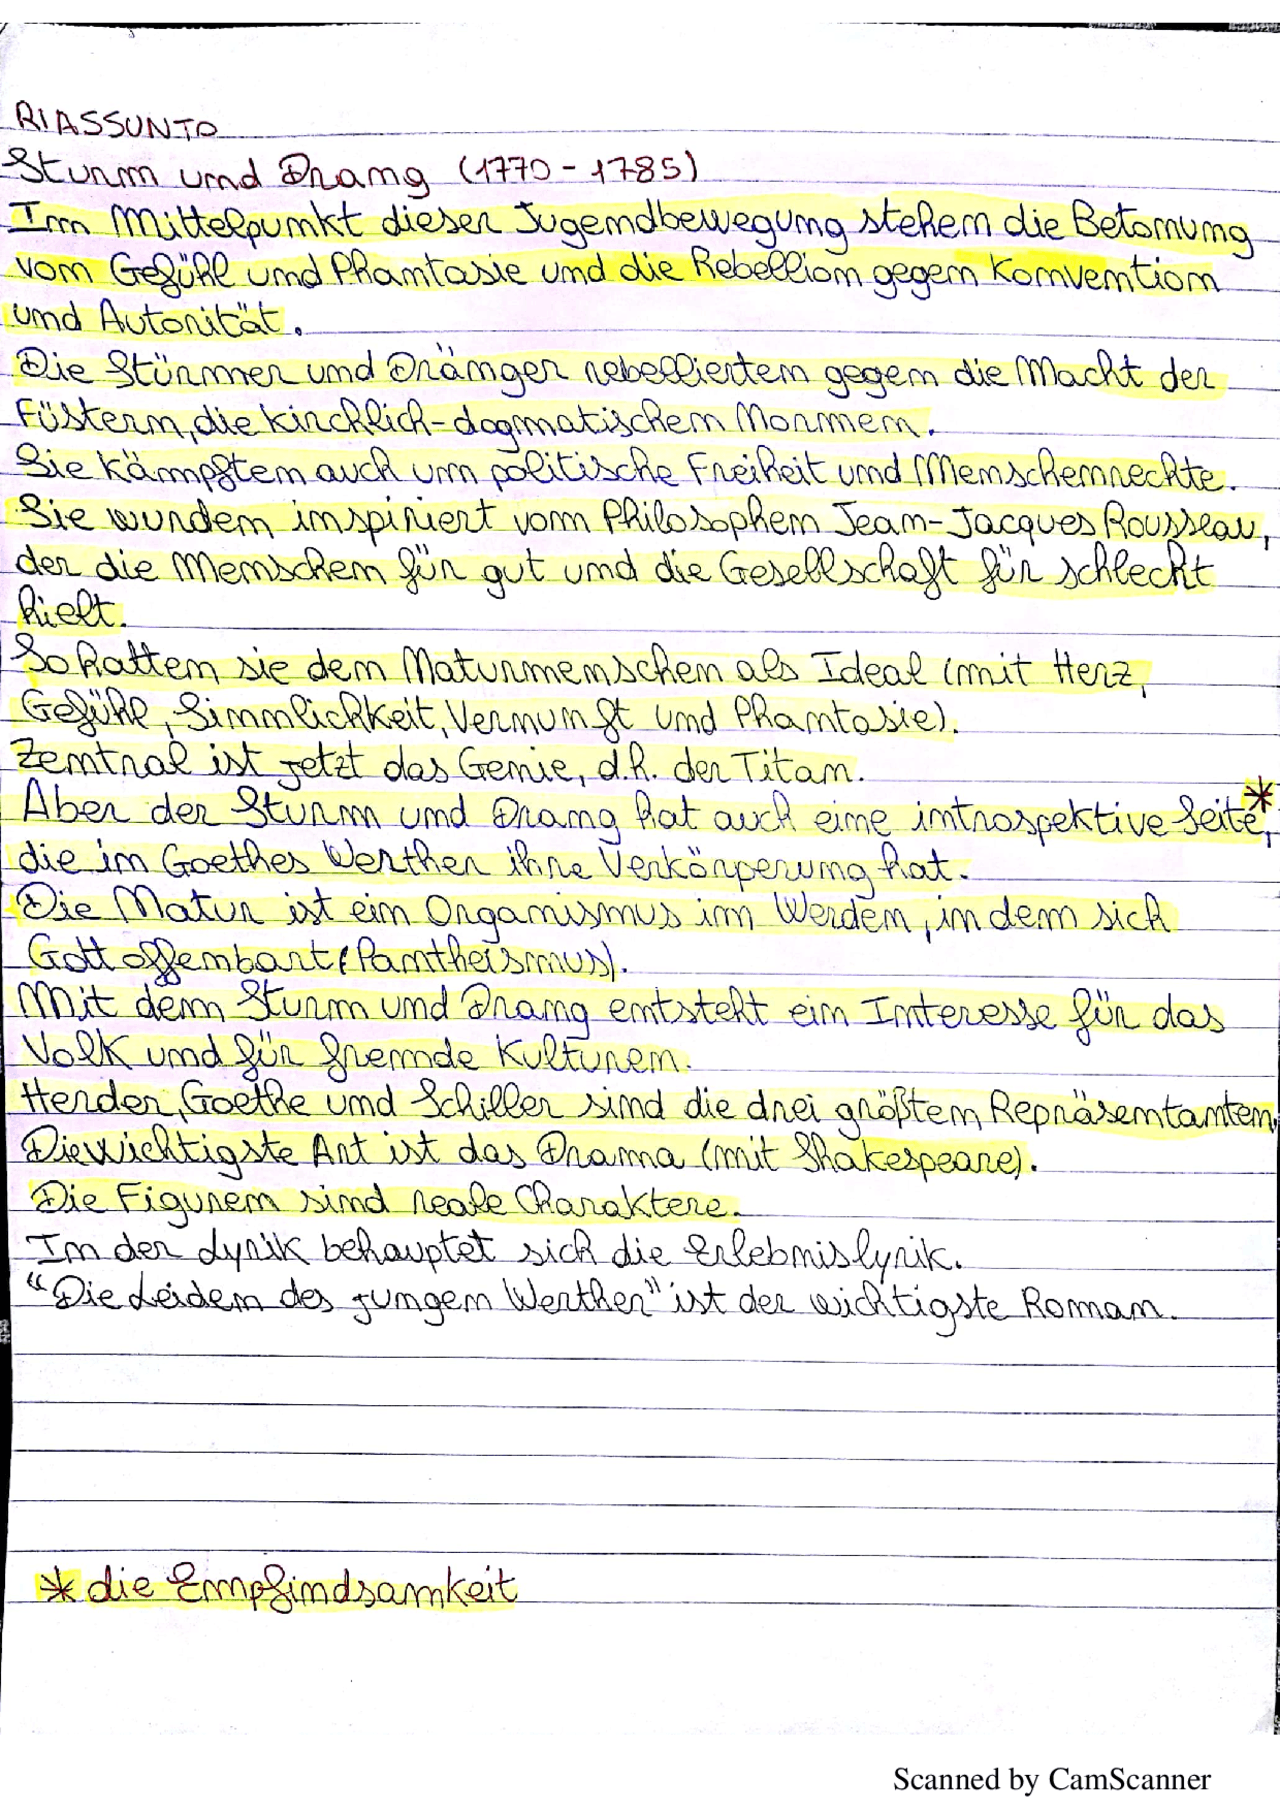 RIASSUNTO
Sturm und Drang (1770 - 1785)
Im Mittelpunkt dieser Jugendbewegung stehen die Betonung
vom Gefühl und Phantasie und die Rebellion gegen Konvention
und Autorität.
Die Stürmer und Dränger rebellierten gegen die Macht der
Füstern, die kirchlich-dogmatischen Normen.
Sie kämpften auch um politische Freiheit und Menschenrechte.
Sie wurden inspiriert vom Philosophen Jean-Jacques Rousseau,
der die Menschen für gut und die Gesellschaft für schlecht
hielt.
So hatten sie den Naturmenschen als Ideal (mit Herz,
Gefühl, Sinnlichkeit, Vernunft und Phantasie).
Zentral ist jetzt das Genie, d.h. der Titan.
Aber der Sturm und Drang hat auch eine introspektive Seite*,
die in Goethes Werther ihre Verkörperung hat.
Die Natur ist ein Organismus im Werden, in dem sich
Gott offenbart (Pantheismus).
Mit dem Sturm und Drang entsteht ein Interesse für das
Volk und für fremde Kulturen.
Herder, Goethe und Schiller sind die drei größten Repräsentanten.
Die wichtigste Art ist das Drama (mit Shakespeare).
Die Figuren sind reale Charaktere.
In der Lyrik behauptet sich die Erlebnislyrik.
"Die Leiden des jungen Werther" ist der wichtigste Roman.
* die Empfindsamkeit
Scanned by CamScanner